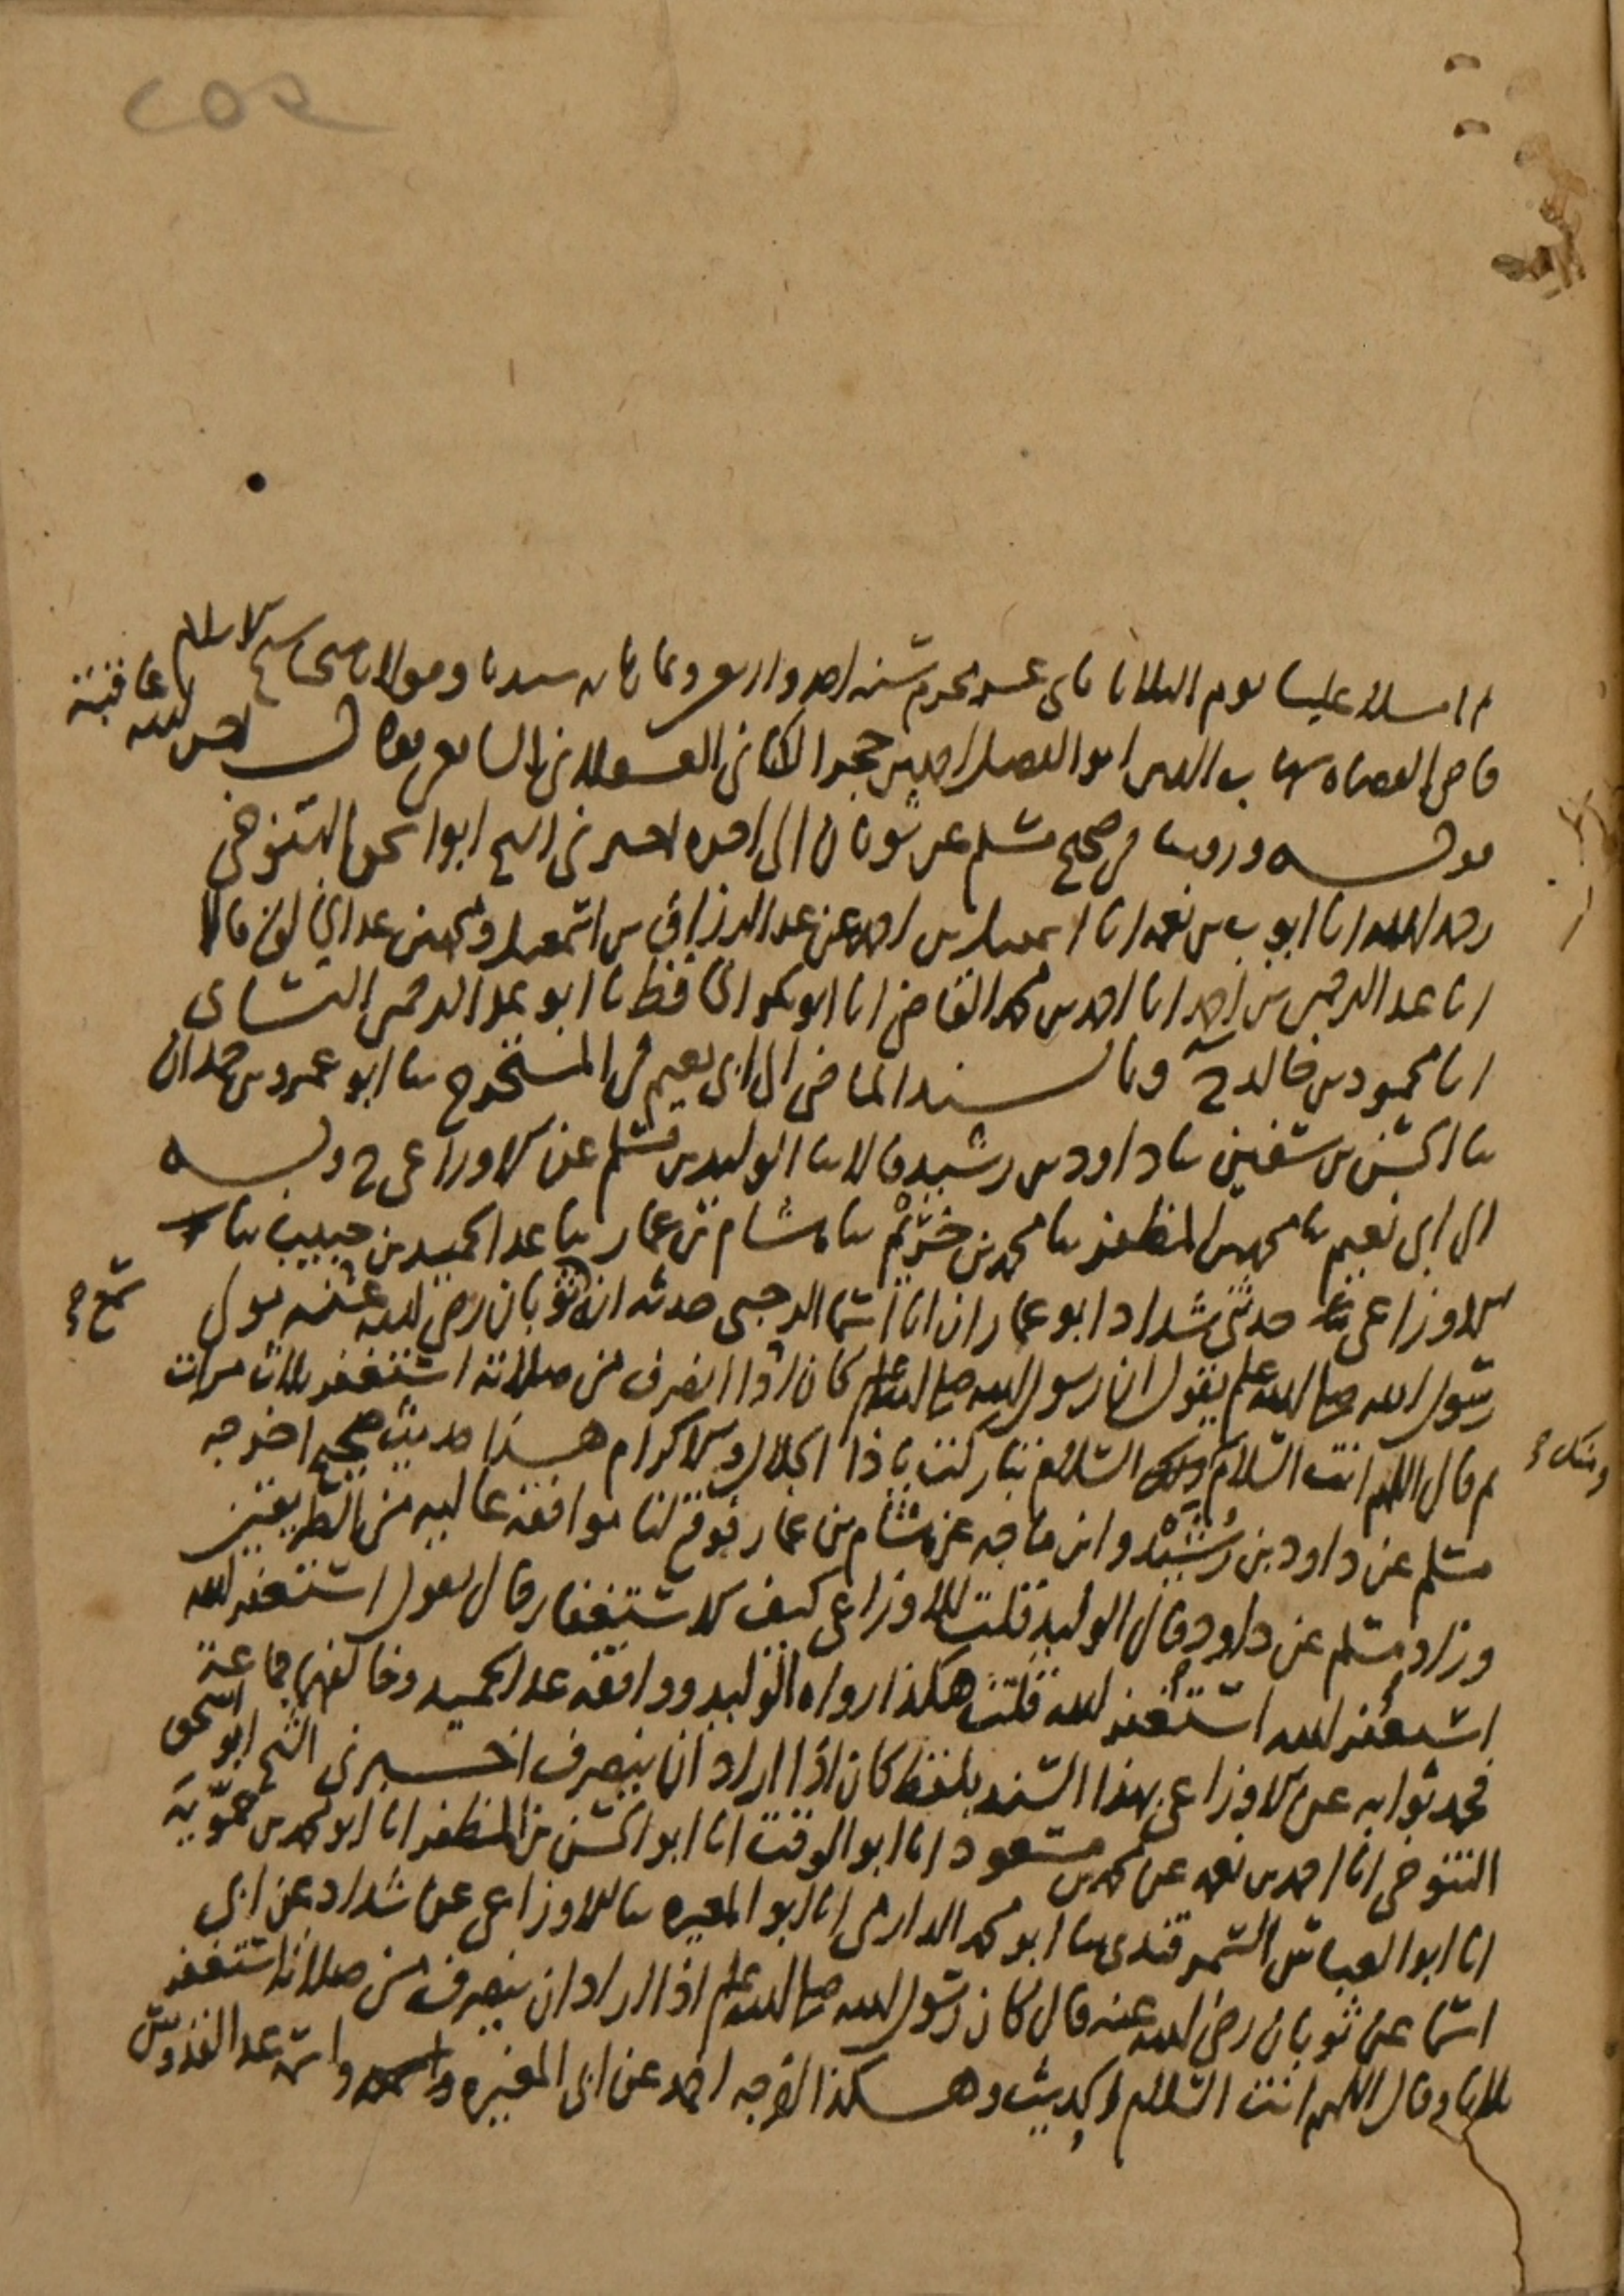 ثم املا علينا يوم الثلاثا ثاني عشر محرم سنة احدى واربعين وثمان مائة سيدنا ومولانا شيخ الاسلام
قاضي القضاة شهاب الدين ابو الفضل احمد بن حجر الكناني العسقلاني الشافعي احسن الله عاقبته
قوله وروينا في صحيح مسلم عن ثوبان الى اخره اخبرني الشيخ ابو اسحق التنوخي
رحمه الله انا ايوب بن نعمة انا اسمعيل بن احمد عن عبد الرزاق بن اسمعيل قالا
انا عبد الرحمن بن احمد انا احمد بن محمد القاضي انا ابو بكر الحافظ نا ابو عبد الرحمن النسائي
انا محمود بن خالد ح وبالسند الماضي الى ابي نعيم في المستخرج ثنا ابو عمرو بن حمدان
ثنا الحسن بن سفين ثنا داود بن رشيد قالا ثنا الوليد بن مسلم عن الاوزاعي ح وبه
الى ابي نعيم ثنا محمد بن المظفر ثنا محمد بن خريم ثنا هشام بن عمار ثنا عبد الحميد بن حبيب ثنا
الاوزاعي حدثني شداد ابو عمار ان ابا اسما الرحبي حدثه انه ثوبان رضي الله عنه مولى
سمع صح
رسول الله صلى الله عليه وسلم يقول ان رسول الله صلى الله عليه وسلم كان اذا انصرف من صلاته استغفر ثلاث مرات
ثم قال اللهم انت السلام السلام تباركت يا ذا الجلال والاكرام هذا حديث صحيح اخرجه
ومنك صح
مسلم عن داود بن رشيد وابن ماجه عن هشام بن عمار فوقع لنا موافقة عاليه من الطريقين
وزاد مسلم عن داود قال الوليد فقلت للاوزاعي كيف الاستغفار قال يقول استغفر الله
استغفر الله استغفر الله قلت هكذا رواه الوليد ووافقه عبد الحميد وخالفهما جماعة
فحدثوا به عن الاوزاعي بهذا السند بلفظ كان اذا اراد ان ينصرف اخبرني الشيخ ابو اسحق
التنوخي انا احمد بن نعمة عن محمد بن مسعود انا ابو الوقت انا ابو الحسن بن المظفر انا ابو محمد بن حمويه
انا ابو العباس السمرقندي ثنا ابو محمد الدارمي انا ابو المغيره ثنا الاوزاعي عن شداد عن ابي
اسما عن ثوبان رضي الله عنه قال كان رسول الله صلى الله عليه وسلم اذا اراد ان ينصرف من صلاته استغفر
ثلاثا وقال اللهم انت السلام الحديث وهكذا اخرجه احمد عن ابي المغيره عبد القدوس